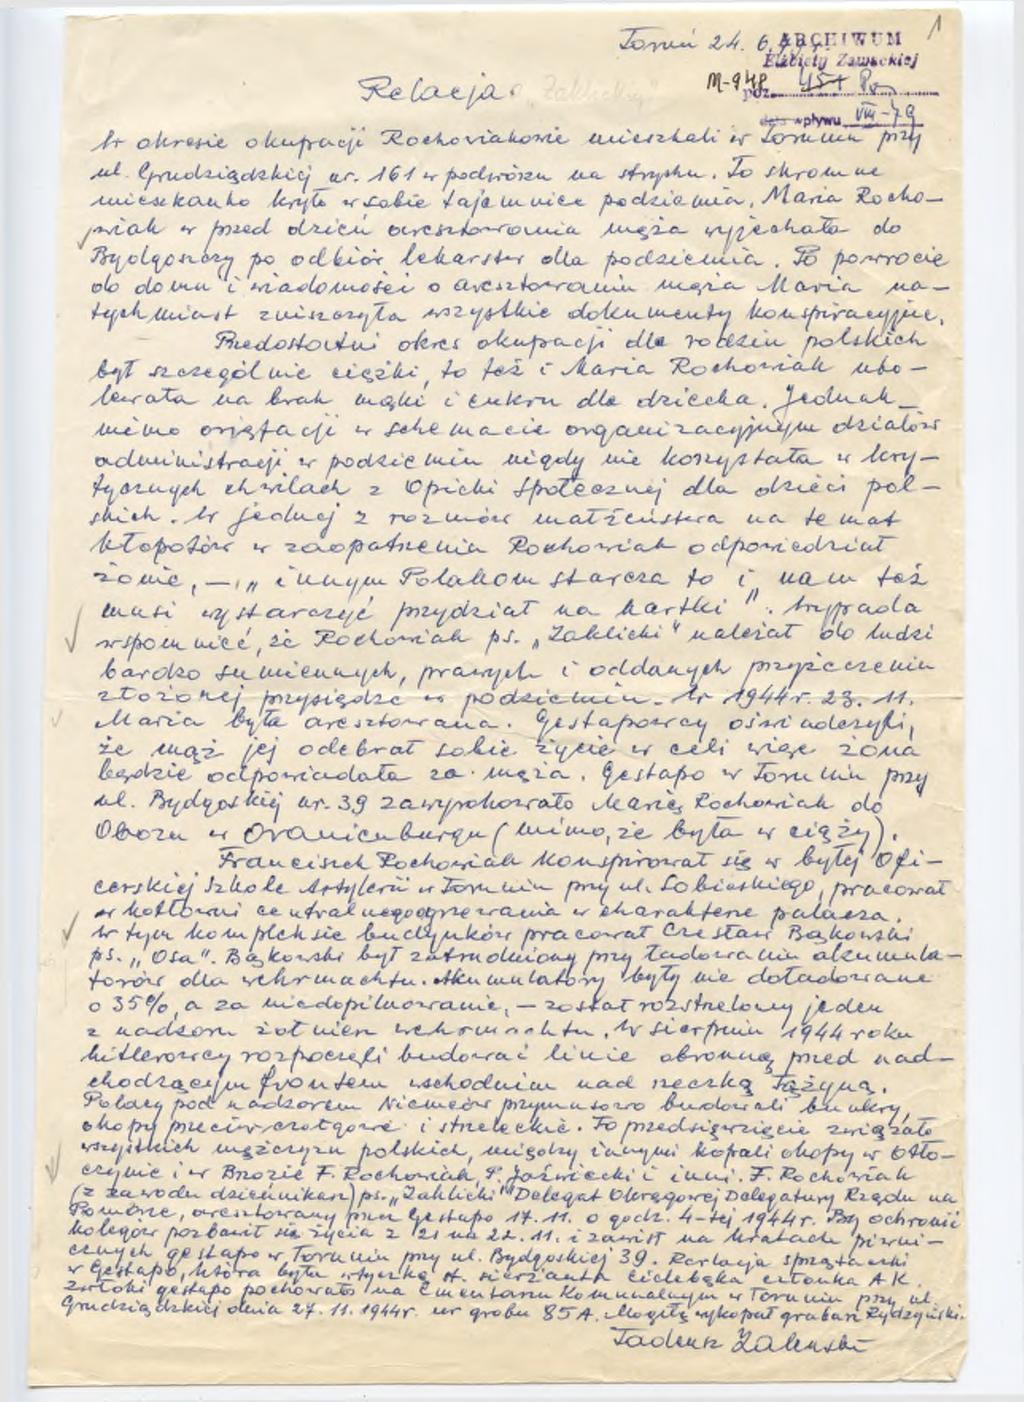 1
Toruń 24. 6.
ARCHIWUM
Elżbiety Zawackiej
M-948
poz. 457 Pom
data wpływu VIII-79
Relacja o "Zaklicki"
W okresie okupacji Rochowiakowie mieszkali w Toruniu przy
ul. Grudziądzkiej nr. 161 w podwórzu na strychu. To skromne
mieszkanko kryło w sobie tajemnice podziemia. Maria Rocho-
wiak w przed dzień aresztowania męża wyjechała do
Bydgoszczy po odbiór lekarstw dla podziemia. Po powrocie
do domu i wiadomości o aresztowaniu męża Maria na-
tychmiast zniszczyła wszystkie dokumenty konspiracyjne.
Przedostatni okres okupacji dla rodzin polskich
był szczególnie ciężki, to też i Maria Rochowiak ubo-
lewała na brak mąki i cukru dla dziecka. Jednak
mimo w schemacie organizacyjnym działów
administracji w podziemiu nigdy nie korzystała w kry-
tycznych chwilach z Opieki Społecznej dla dzieci pol-
skich. W jednej z rozmów małżeństwa na temat
kłopotów w zaopatrzenia Rochowiak odpowiedział
żonie, — „innym Polakom starcza to i nam też
musi wystarczyć przydział na kartki". Wypada
wspomnieć, że Rochowiak ps. „Zaklicki" należał do ludzi
bardzo sumiennych, prawych i oddanych przyżeczeniu
złożonej przysiędze w podziemiu. W 1944 r. 23. 11.
Maria była aresztowana. Gestapowcy oświadczyli,
że mąż jej odebrał sobie życie w celi więc żona
będzie odpowiadała za męża. Gestapo w Toruniu przy
ul. Bydgoskiej nr. 39 zawyrokowało Marię Rochowiak do
Obozu w Oranienburgu (mimo, że była w ciąży).
Franciszek Rochowiak konspirował się w byłej Ofi-
cerskiej Szkole Artylerii w Toruniu przy ul. Sobieskiego, pracował
w kotłowni centralnego ogrzewania w charakterze palacza.
W tym kompleksie budynków pracował Czesław Bąkowski
ps. „Osa". Bąkowski był zatrudniony przy ładowaniu akumula-
torów dla wehrmachtu. Akumulatory były nie doładowane
o 35%, a za niedopilnowanie, — został rozstrelony jeden
z nadzoru żołnierz wehrmachtu. W sierpniu 1944 roku
hitlerowcy rozpoczęli budować linie obronną przed nad-
chodzącym frontem wschodnim nad rzeczką Tążyną.
Polacy pod nadzorem Niemców przymusowo budowali bunkry,
okopy przeciw czołgowe i strzeleckie. To przedsięwzięcie związało
wszystkich mężczyzn polskich, między innymi kopali okopy w Otło-
czynie i w Brozie F. Rochowiak, P. Jaźwiecki i inni. F. Rochowiak
(z zawodu dziennikarz) ps. „Zaklicki" Delegat Okręgowej Delegatury Rządu na
Pomorze, aresztowany przez Gestapo 17. 11. o godz. 4-tej 1944 r. By ochronić
kolegów pozbawił się życia z 21 na 22. 11. i zawisł na kratach piwni-
cznych gestapo w Toruniu przy ul. Bydgoskiej 39. Relacja sprzątaczki
w Gestapo, która była wtyczką st. sierżanta członka A K.
Zwłoki gestapo pochowało na Cmentarzu Komunalnym w Toruniu przy ul.
Grudziądzkiej dnia 27. 11. 1944 r. nr grobu 85 A. Mogiłę wykopał grabarz Rydzyński.
Tadeusz Zalewski